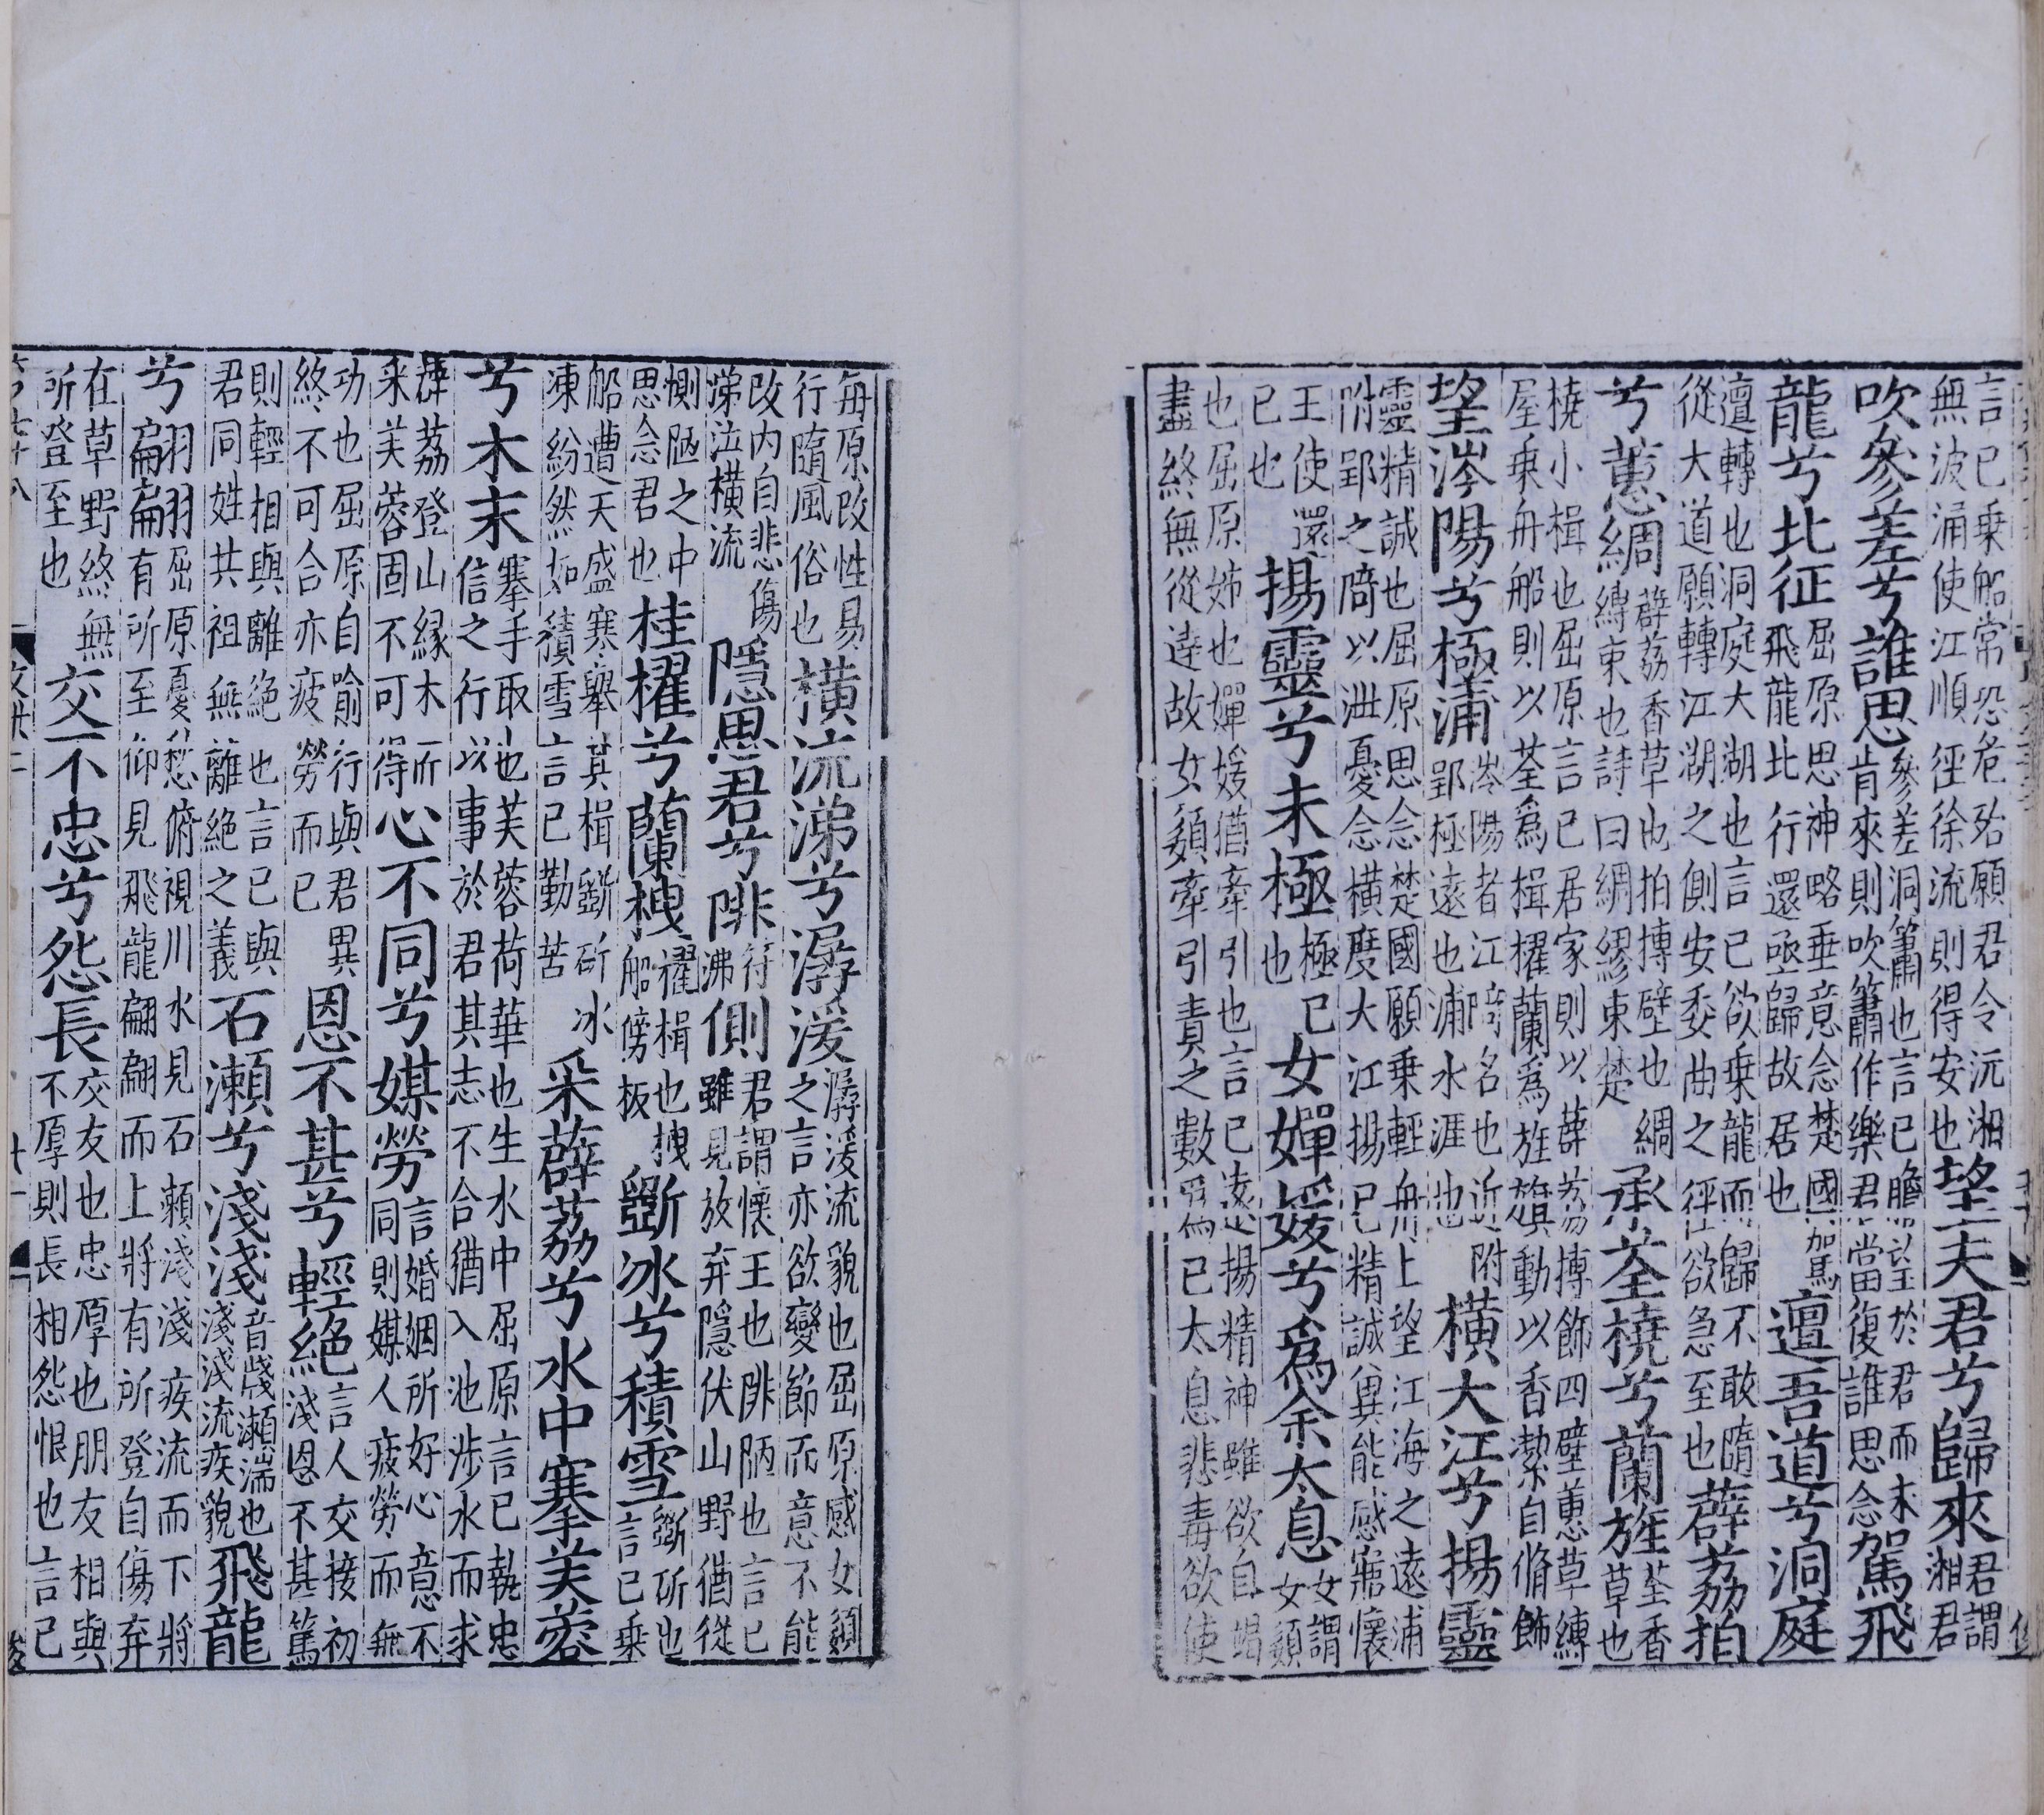 言已乗船常恐危殆願君令沅湘無波涌使江順徑徐流則得安也望夫君兮歸來君謂湘君
吹參差兮誰思參差洞簫也言已瞻望於君而未肯來則吹簫作樂君當復誰思念駕飛
龍兮北征屈原思神略垂意念楚國駕飛龍北行還亟歸故居也邅吾道兮洞庭
邅轉也洞庭大湖也言已欲乗龍而歸不敢隨從大道願轉江湖之側安委曲之徑欲急至也薜荔拍
兮蕙綢薜荔香草也拍搏壁也綢縛束也詩曰綢繆束楚承荃橈兮蘭旌荃香草也
橈小楫也屈原言已居家則以薜荔搏飾四壁蕙草縛屋乗舟船則以荃爲楫櫂蘭爲旌旗動以香潔自脩飾
望涔陽兮極浦涔陽者江碕名也近附郢極遠也浦水涯也橫大江兮揚靈
靈精誠也屈原思念楚國願乗輕舟上望江海之遠浦附郢之碕以泄憂念橫度大江揚已精誠兾能感寤懷
王使還已也揚靈兮未極極已也女嬋媛兮爲余太息女謂女嬃
也屈原姊也嬋媛猶牽引也言已遠揚精神雖欲自竭盡終無從逹故女嬃牽引責之數爲已太息悲毒欲使
毎原改性易行隨風俗也橫流涕兮潺湲潺湲流貌也屈原感女嬃之言亦欲變節而意不能
改内自悲傷涕泣橫流隱思君兮陫符沸側君謂懷王也陫陋也言已雖見放弃隱伏山野猶從
惻陋之中思念君也桂櫂兮蘭枻櫂楫也枻船傍板斵冰兮積雪斵斫也言已乗
船遭天盛寒舉其楫斵斫冰凍紛然如積雪言已勤苦采薜荔兮水中搴芙蓉
兮木末搴手取也芙蓉荷華也生水中屈原言已執忠信之行以事於君其志不合猶入池涉水而求
薜荔登山緣木而采芙蓉固不可得心不同兮媒勞言婚姻所好心意不同則媒人疲勞而無
功也屈原自喻行與君異終不可合亦疲勞而已恩不甚兮輕絕言人交接初淺恩不甚篤
則輕相與離絕也言已與君同姓共祖無離絕之義石瀬兮淺淺音牋瀬湍也淺淺流疾貌飛龍
兮翩翩屈原憂愁俯視川水見石瀬淺淺疾流而下將有所至仰見飛龍翩翩而上將有所登自傷弃
在草野終無所登至也交不忠兮怨長交友也忠厚也朋友相與不厚則長相怨恨也言已